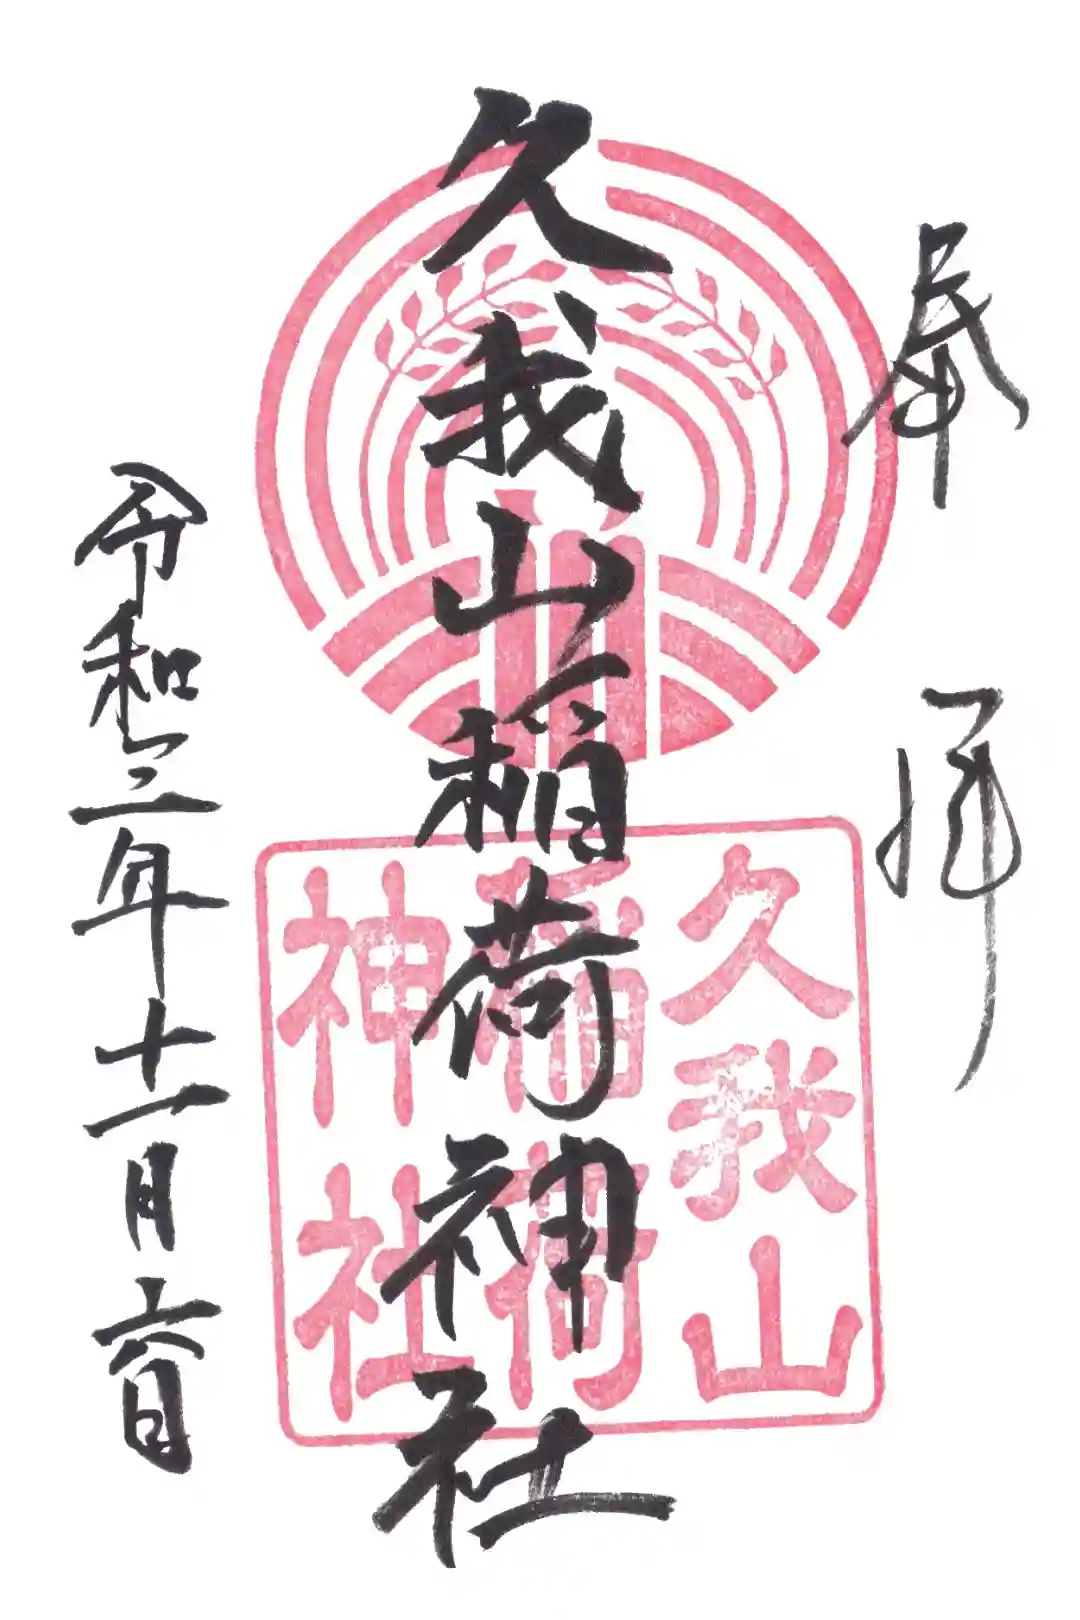 奉拝
久我山稲荷神社
久我山
稲荷
神社
令和三年十一月六日